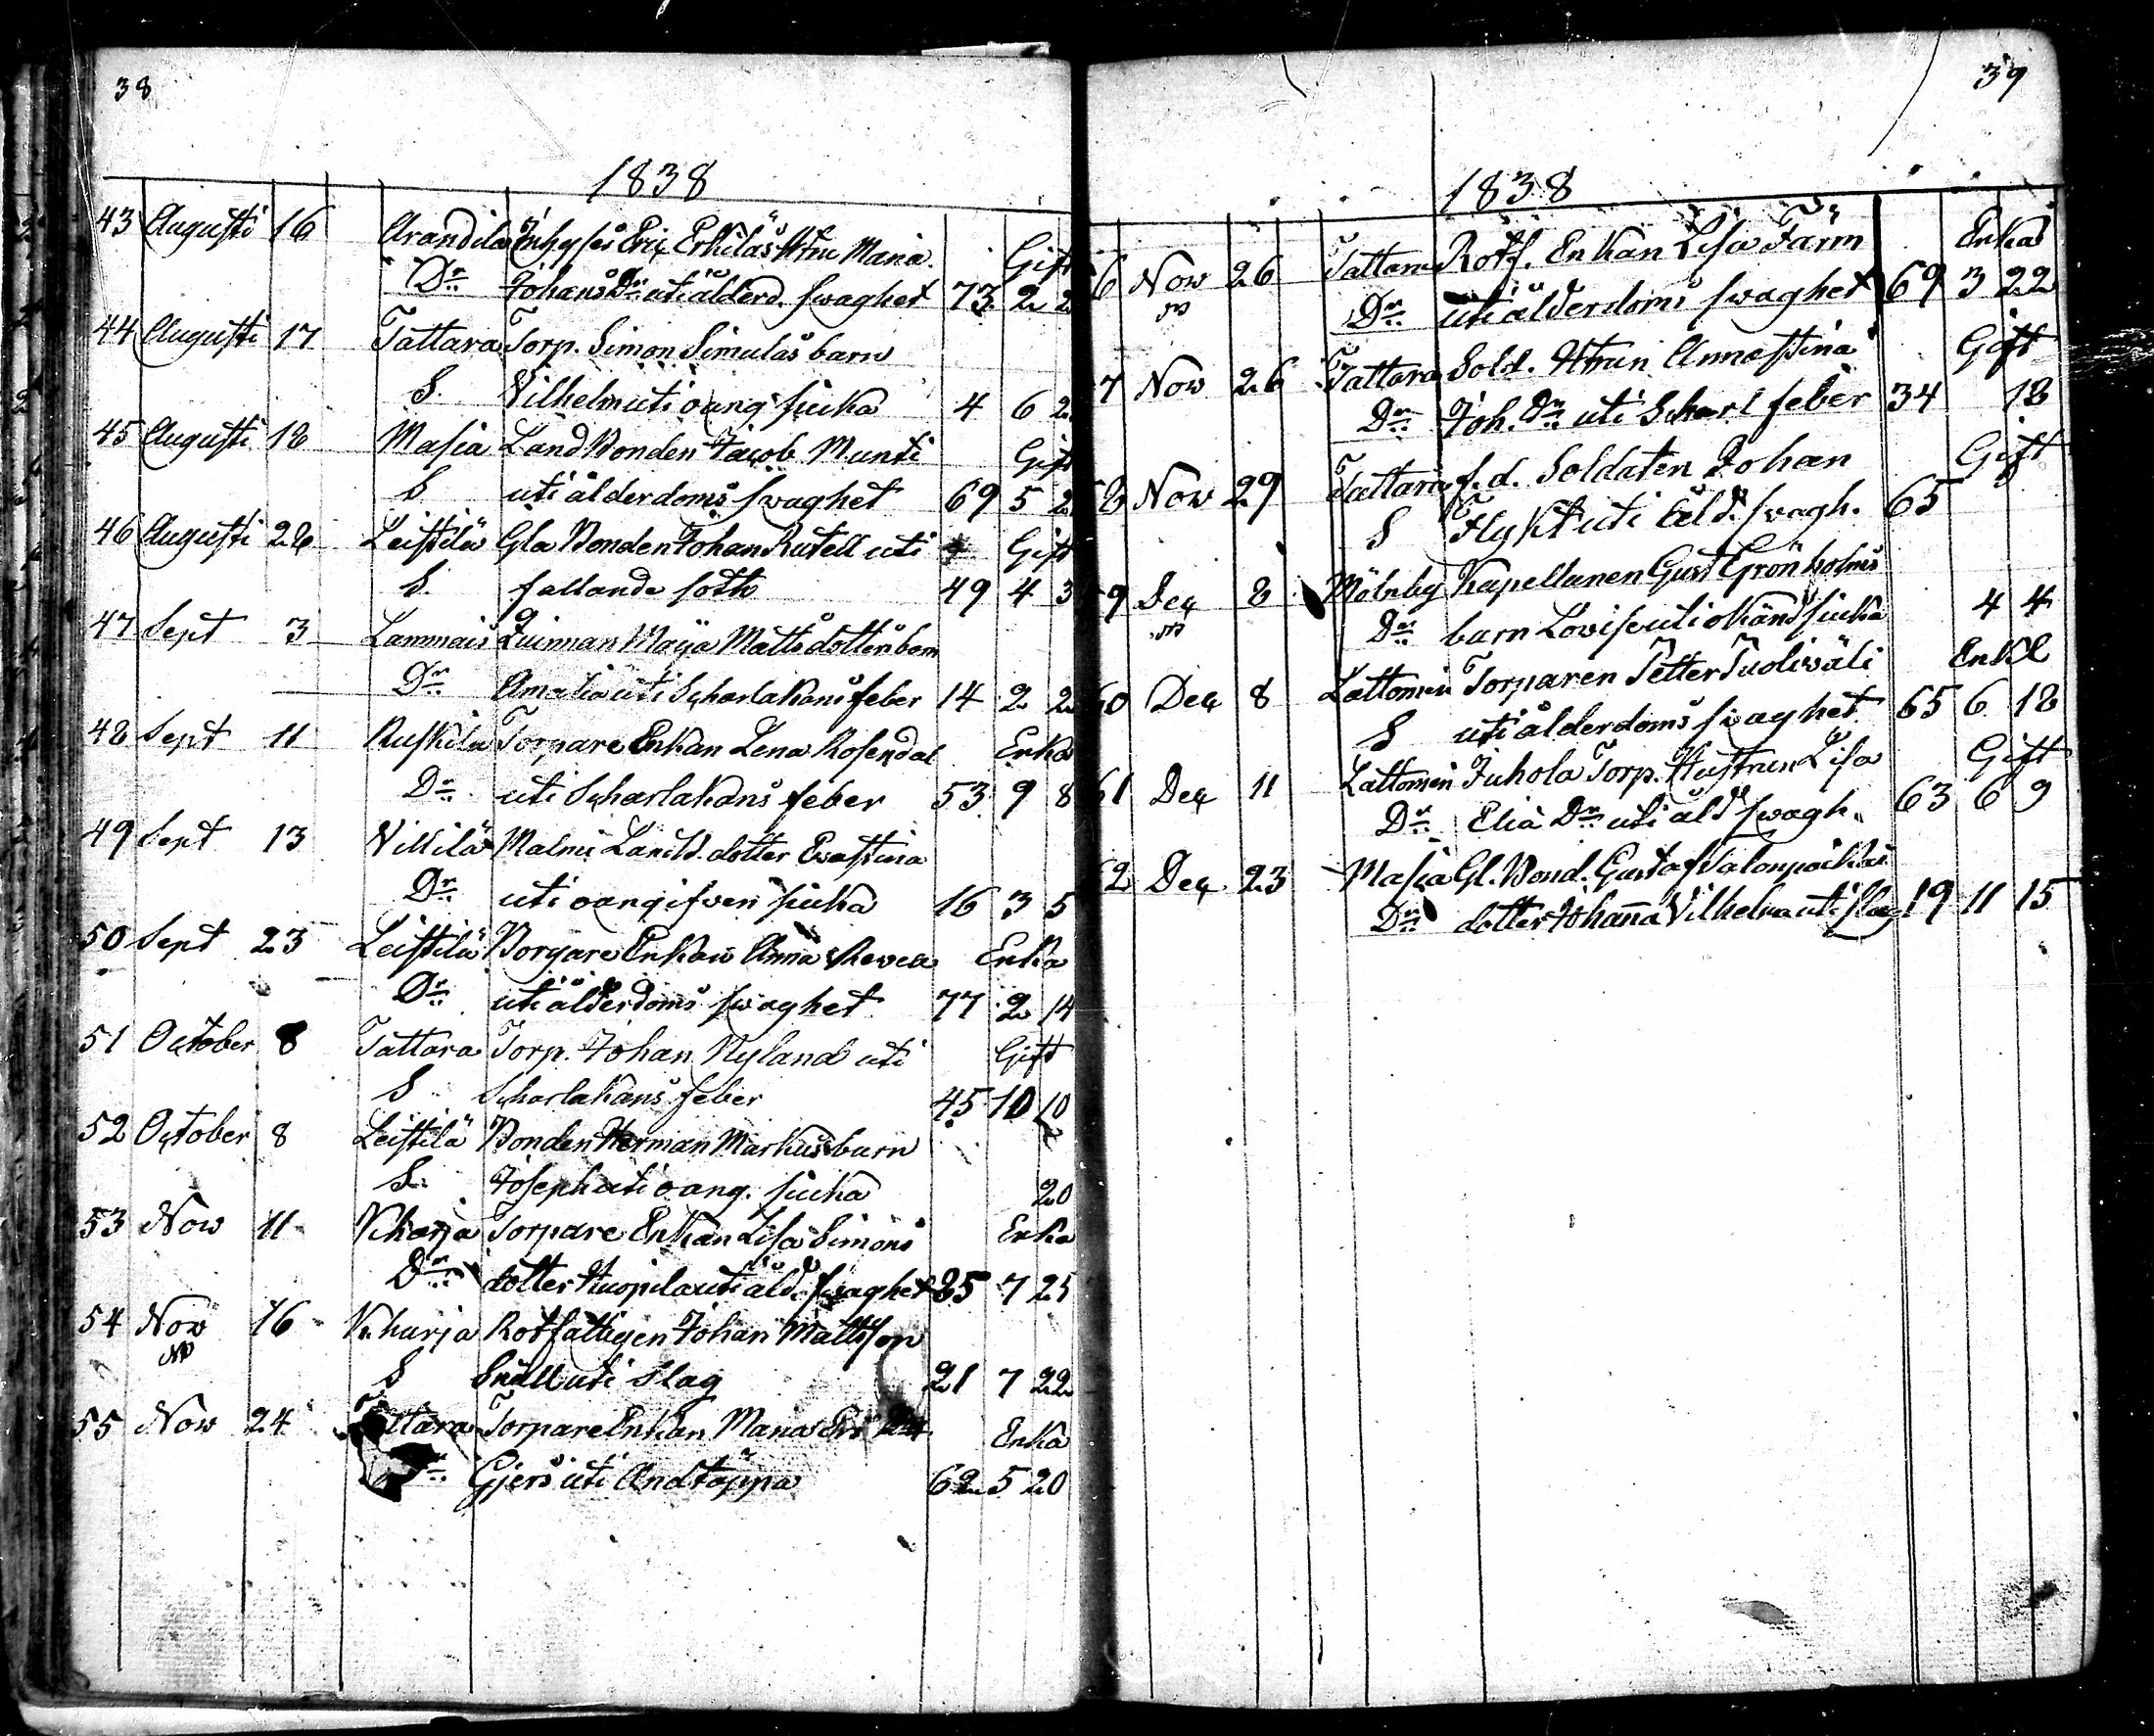 38
1838
43 Augusti 16 Arandila Inhyses Eric Erkiläs Hru Maria Gift
Dr. Johans Dr uti ålderd. swaghet 73 2
44 Augusti 17 Tattara Torp. Simon Simulas barn
S. Vilhelm uti oang siuka 4 6 2
45 Augusti 18 Masia Land Bonden Jacob Munti Gift
S uti ålderdoms swaghet 69 5 2
46 Augusti Leistilä Gla Bonden Johan Rutell uti Gift
S. fallande soth 49 4 3
47 Sept 3 Lammais Quinnan Maija Matts dotters barn
Dr. Amalia uti Scharlakans feber 14 2 2
48 Sept 11 Ruskila Torpare Enkan Lena Rosendal Enka
Dr. uti Scharlakans feber 53 9 8
49 Sept 13 Villilä Malmi Landb. dotter Evastina
Dr. uti oangifven siuka 16 3 5
50 Sept 23 Leistilä Borgare Enkan Anna Enka
Dr. uti ålderdoms swaghet 77 2 14
51 October 8 Tattara Torp. Johan Nyland uti Gift
S Scharlakans feber 45 10 10
52 October 8 Leistilä Bonden Herman Markus barn
S. Joseph uti oang. siuka 20
53 Nov 11 Torpare Enkan Lisa Simons Enka
Dr. dotter uti åld. swaghet 85 7 25
54 Nov 16 Rotfattigen Johan Mattsson
S Snäll uti slag 21 7 22
55 Nov 24 Torpare Enkan Maria Enka
Gjers uti Andtäppa 62 5 20
39
1838
6 Nov 26 Tattara Rotf. Enkan Lisa Färm Enka
Dr. uti ålderdoms swaghet 69 3 22
7 Nov 26 Tattara Sold. Hrun Annastina Gift
Dr. Joh. Dr. uti Scharl feber 34 18
8 Nov 29 Tattara f.d. Soldaten Johan Gift
S Flykt uti åld. swagh. 65
9 Dec 8 Mölnby Kapellanen Gust Grönholms
Dr. barn Lovise uti okänd siuka 4 4
60 Dec 8 Lattomeri Torparen Petter Tuoliwäli Enkl
S uti ålderdoms swaghet 65 6 18
61 Dec 11 Lattomeri Juhola Torp. Hustrun Lisa Gift
Dr. Elia Dr. uti åld swagh. 63 6 9
62 Dec 23 Masia Gl. Bond. Gustaf Salonpoikas
Dr. dotter Johanna Vilhelma uti slag 19 11 15